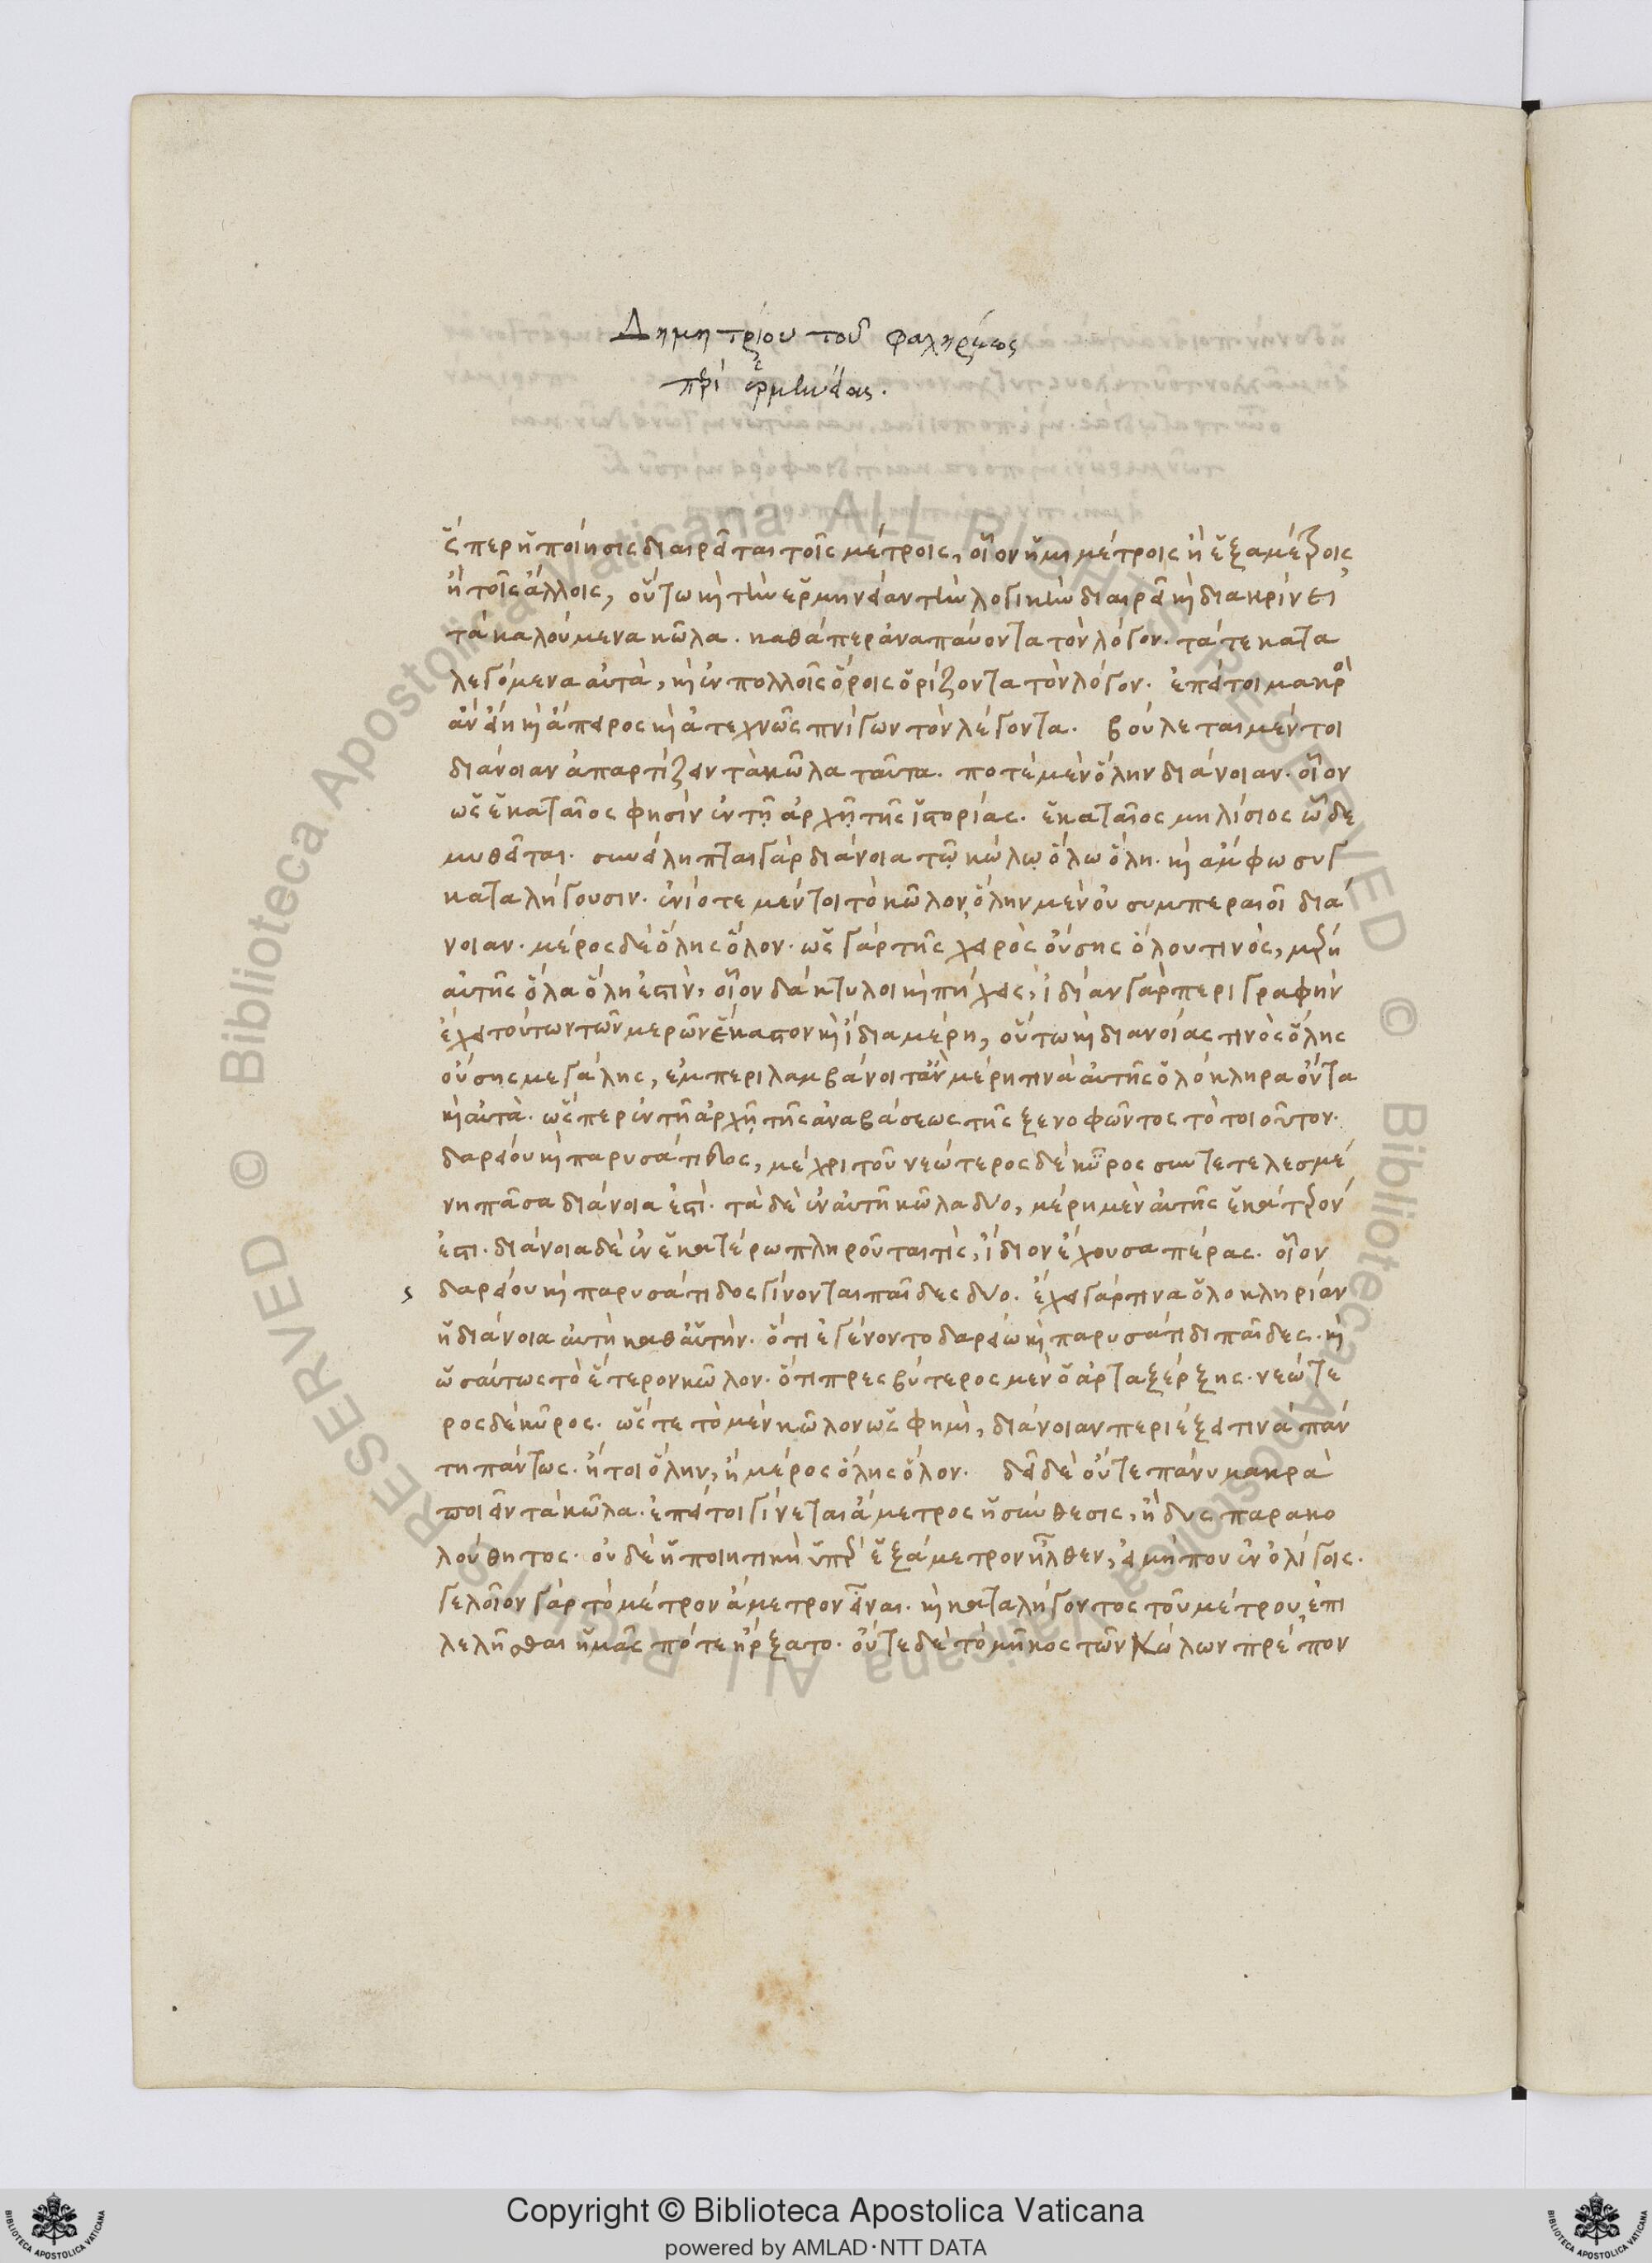 Δημητρίου τοῦ φαληρέως
περὶ ἑρμηνείας.
ὥσπερ ἡ ποίησις διαιρεῖται τοῖς μέτροις, οἷον ἡμιμέτροις ἢ ἑξαμέτροις
ἢ τοῖς ἄλλοις, οὕτω καὶ τὴν ἑρμηνείαν τὴν λογικὴν διαιρεῖ καὶ διακρίνει
τὰ καλούμενα κῶλα. καθάπερ ἀναπαύοντα τὸν λόγον. τά τε κατα
λεγόμενα αὐτὰ, καὶ ἐν πολλοῖς ὅροις ὁρίζοντα τὸν λόγον. ἐπεί τοι μακρὸ
ἂν εἴη καὶ ἄπειρος καὶ ἀτεχνῶς πνίγων τὸν λέγοντα. βούλεται μέντοι
διάνοιαν ἀπαρτίζειν τὰ κῶλα ταῦτα. ποτὲ μὲν ὅλην διάνοιαν. οἷον
ὡς ἑκαταῖος φησὶν ἐν τῇ ἀρχῇ τῆς ἱστορίας. ἑκαταῖος μηλίσιος ὧδε
μυθεῖται. συνείληπται γὰρ διάνοια τῷ κώλῳ ὅλω ὅλη. καὶ ἄμφω συγ
καταλήγουσιν. ἐνίοτε μέντοι τὸ κῶλον, ὅλην μὲν οὐ συμπεραιοῖ διά
νοιαν. μέρος δὲ ὅλης ὅλον. ὡς γὰρ τῆς χειρὸς οὔσης ὅλου τινὸς, μέρη
αὐτῆς ὅλα ὅλη ἐστὶν, οἷον δάκτυλοι καὶ πήχεις, ἰδίαν γὰρ περιγραφὴν
ἔχει τούτων τῶν μερῶν ἕκαστον καὶ ἴδια μέρη, οὕτω καὶ διανοίας τινὸς ὅλης
οὔσης μεγάλης, ἐμπεριλαμβάνοιτ' ἂν μέρη τινὰ αὐτῆς ὁλόκληρα ὄντα
καὶ αὐτά. ὥσπερ ἐν τῇ ἀρχῇ τῆς ἀναβάσεως τῆς ξενοφῶντος τὸ τοιοῦτον.
δαρείου καὶ παρυσάτιδος, μέχρι τοῦ νεώτερος δὲ κῦρος συντετελεσμέ
νη πᾶσα διάνοια ἐστί. τὰ δὲ ἐν αὐτῇ κῶλα δύο, μέρη μὲν αὐτῆς ἑκάτερόν
ἐστι. διάνοια δὲ ἐν ἑκατέρω πληροῦται τὶς, ἴδιον ἔχουσα πέρας. οἷον
δαρείου καὶ παρυσάτιδος γίνονται παῖδες δύο. ἔχει γάρ τινα ὁλοκληρίαν
ἡ διάνοια αὐτὴ καθ' αὑτήν. ὅτι ἐγένοντο δαρείω καὶ παρυσάτιδι παῖδες. καὶ
ὡσαύτως τὸ ἕτερον κῶλον. ὅτι πρεσβύτερος μὲν ὁ ἀρταξέρξης. νεώτε
ρος δὲ κῦρος. ὥστε τὸ μὲν κῶλον ὡς φημὶ, διάνοιαν περιέξει τινὰ πάν
τη πάντως. ἤτοι ὅλην, ἢ μέρος ὅλης ὅλον. δεῖ δὲ οὔτε πάνυ μακρὰ
ποιεῖν τὰ κῶλα. ἐπεί τοι γίνεται ἄμετρος ἡ σύνθεσις, ἢ δυσπαρακο
λούθητος. οὐδὲ ἡ ποιητικὴ ὑπὲρ ἑξάμετρον ἦλθεν, εἰ μή που ἐν ὀλίγοις.
γελοῖον γὰρ τὸ μέτρον ἄμετρον εἶναι. καὶ καταλήγοντος τοῦ μέτρου, ἐπι
λελῆσθαι ἡμᾶς πότε ἤρξατο. οὔτε δὲ τὸ μῆκος τῶν κώλων πρέπον